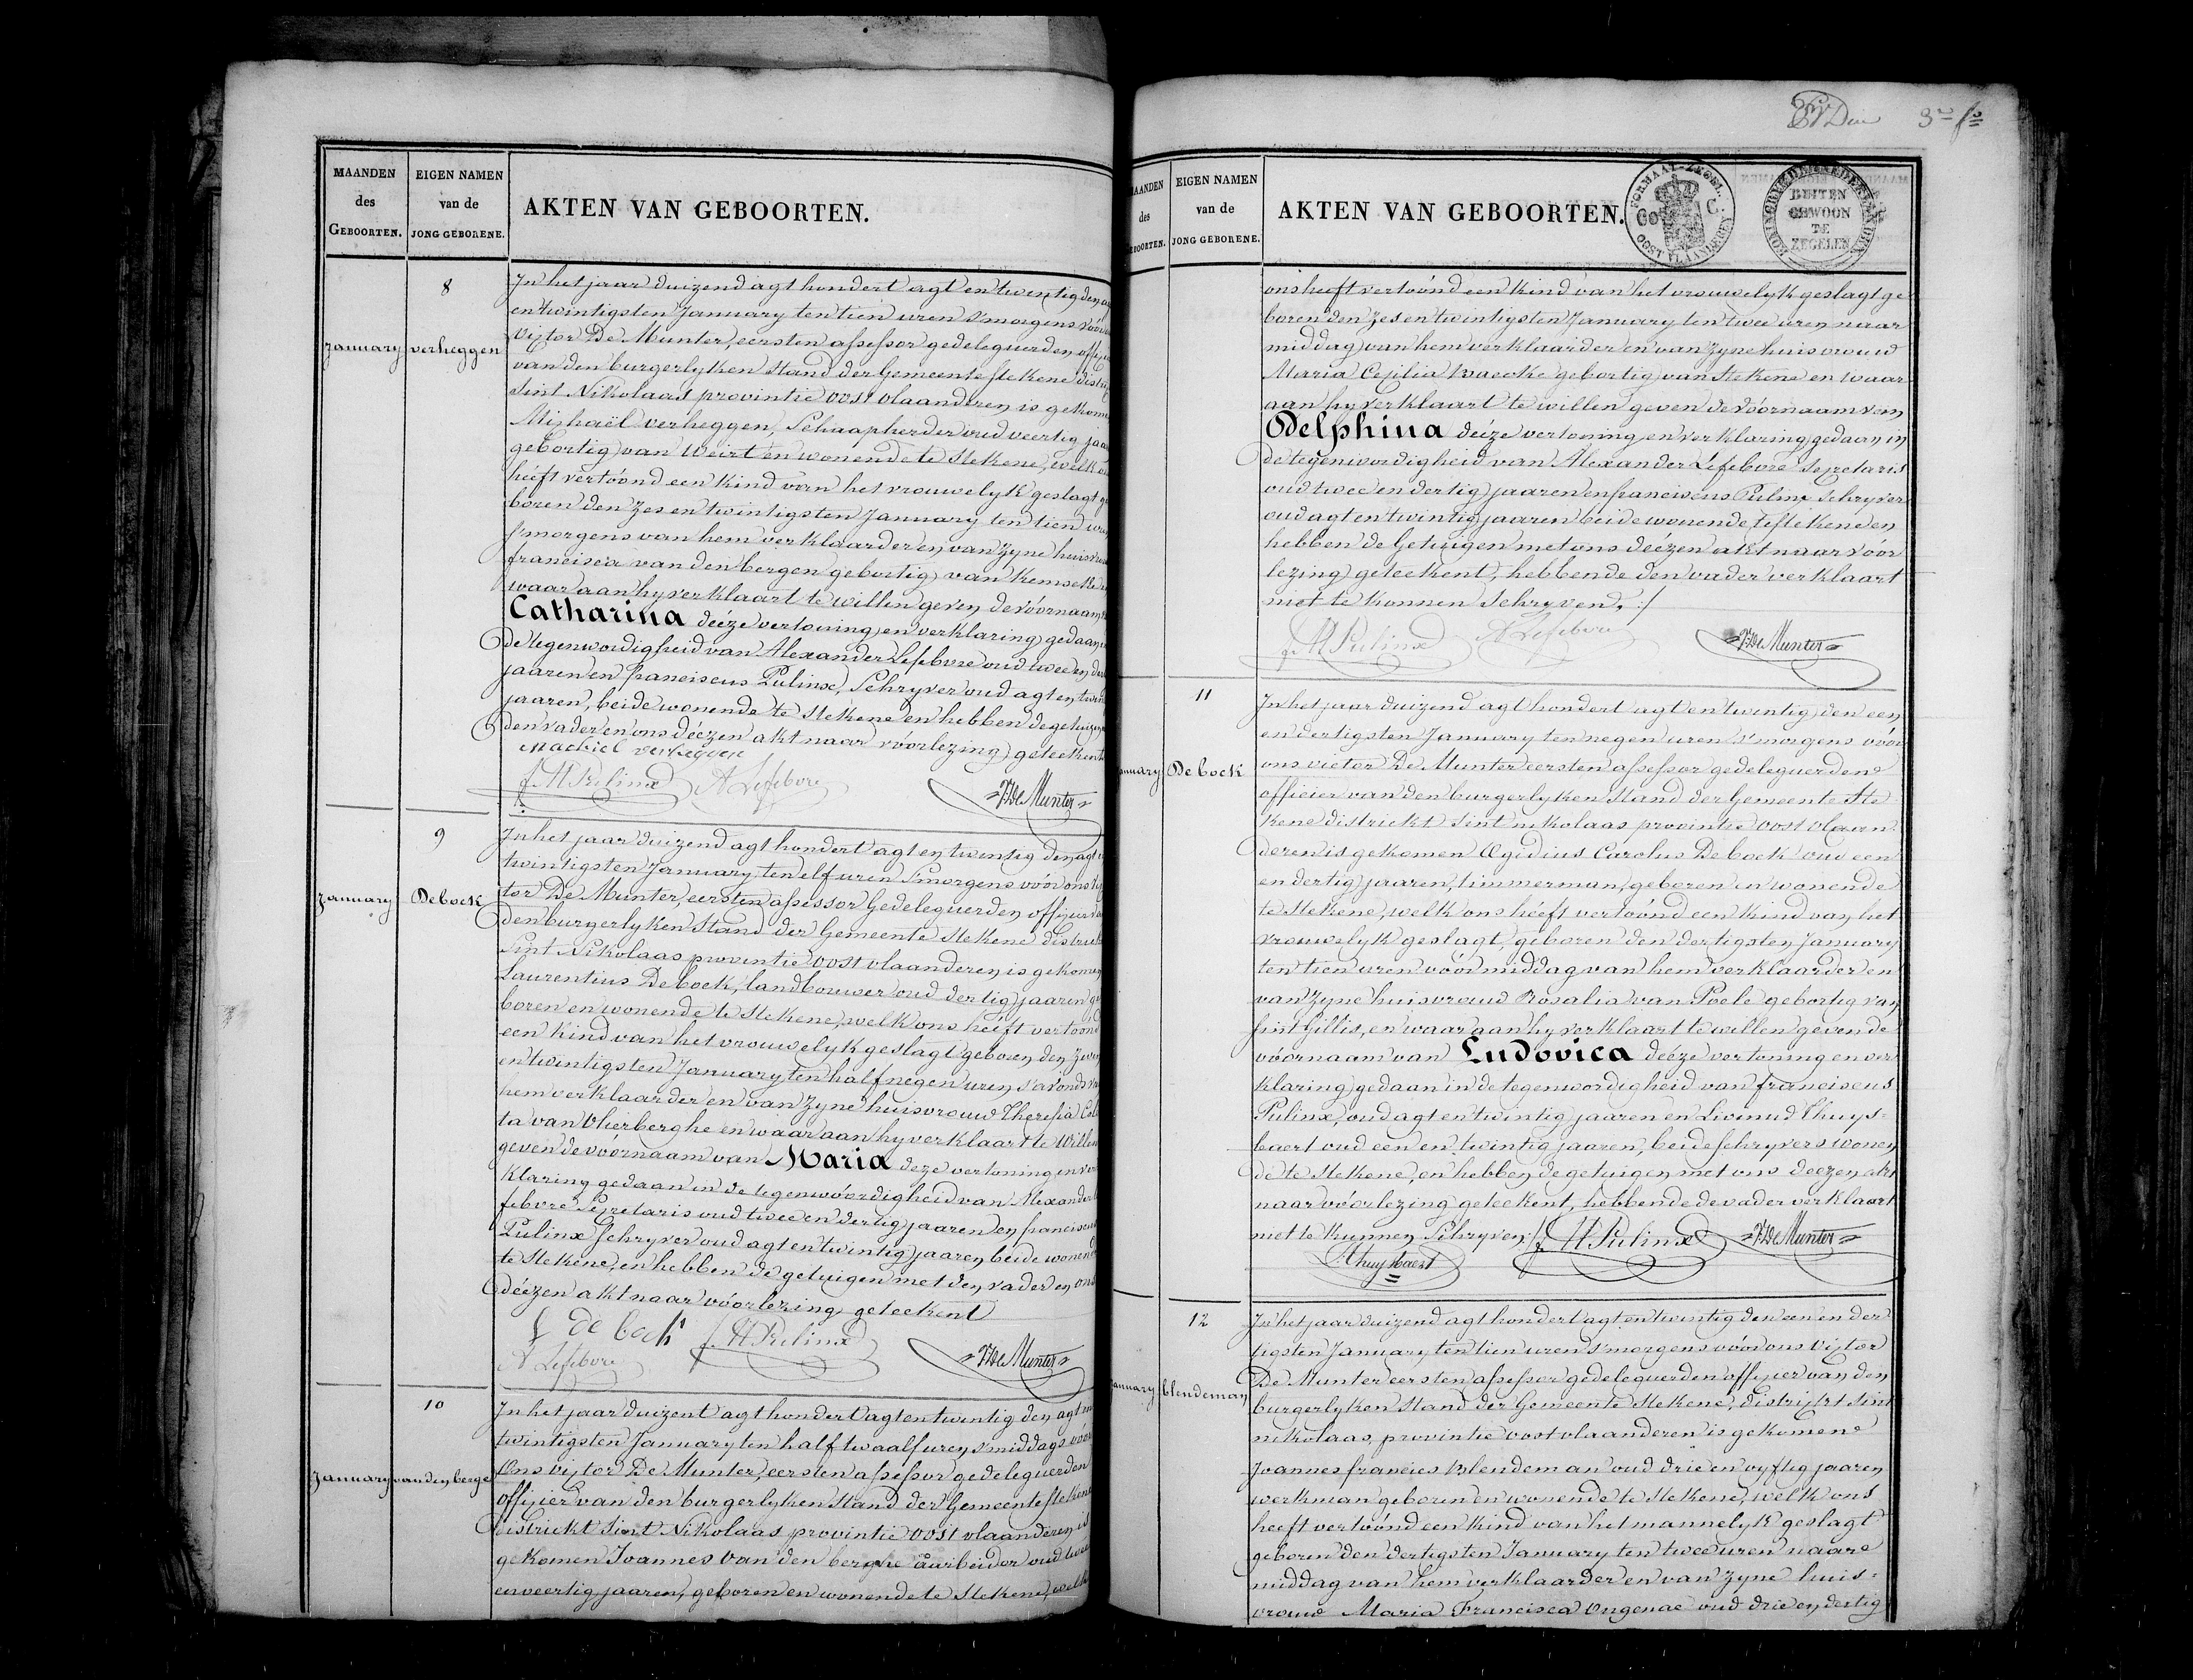 MAANDEN
des
GEBOORTEN.
EIGEN NAMEN
van de
JONG GEBORENE.
AKTEN VAN GEBOORTEN.
8
January
verheggen
In het jaar duizend agt hondert agt en twintig den
en twintigsten January ten tien uren s'morgens vóór
Victor De Munter, eersten assessor gedeleguerden
van den burgerlyken Stand der Gemeente Stekene
Sint Nikolaas provintie oost vlaanderen is gekomen
Michaël verheggen, Schaapherder oud veertig jaar
gebortig van Weirt en wonende te Stekene, welk
héeft vertóónd een kind van het vrouwelyk geslagt
boren den zes en twintigsten January ten tien
s'morgens van hem verklaarder en van zyne
francisca van den bergen gebortig van Kemseke
waar aan hy verklaart te willen geven de vóornaam
Catharina déeze vertoning en verklaring gedaan
de tegenwordigheid van Alexander Lefebvre oud twee en
jaaren en franciscus Pulinx, Schryver oud agt en
jaaren, beide wonende te Stekene en hebben de getuigen
den vader en ons déezen akt naar vóorlezing geteekent
Machiel verheggen
f. H Pulinx A Lefebvre V. De Munter
9
January
De bock
In het jaar duizend agt hondert agt en twintig den agt
twintigsten January, ten elf uren s'morgens vóór ons
tor De Munter, eersten assessor Gedeleguerden
den burgerlyken Stand der Gemeente Stekene
Sint Nikolaas provintie oost vlaanderen is gekomen
Laurentius De bock, landbouwer oud dertig jaaren
boren en wonende te Stekene, welk ons héeft vertoond
een kind van het vrouwelyk geslagt geboren den
en twintigsten January ten half negen uren s'avonds
hem verklaarder en van zyne huisvrouw Theresia
ta van Vlierberghe en waar aan hy verklaart te willen
geven de vóornaam van Maria deze vertoning en
klaring gedaan in de tegenwóordigheid van Alexander
febvre Secretaris oud twee en dertig jaaren en franciscus
Pulinx schryver oud agt en twintig jaaren beide wonende
te Stekene, en hebben de getuigen met den vader en ons
déezen akt naar vóorlezing geteekent
de bock f. H Pulinx
A Lefebvre V. De Munter
10
January
van den berge
In het jaar duizent agt hondert agt en twintig den agt
twintigsten January ten half twaalf uren s'middags vóór
Ons Victor De Munter, eersten assessor gedeleguerden
officier van den burgerlyken Stand der Gemeente Stekene
districkt Sint Nikolaas provintie oost vlaanderen is
gekomen Joannes van den berghe aarbeider oud twee
en veertig jaaren, geboren en wonende te Stekene, welk
3de fo
MAANDEN
des
GEBOORTEN.
EIGEN NAMEN
van de
JONG GEBORENE.
AKTEN VAN GEBOORTEN.
FORMAAT-ZEGEL.
60 C.
OOST VLAANDEREN
BUITEN
GEWOON
TE
ZEGELEN
ons heeft vertóónd een kind van het vrouwelyk geslagt ge
boren den zes en twintigsten January ten twee uren naar
middag van hem verklaarder en van zyne huisvrouw
Maria Cecilia Baecke gebortig van Stekene en waar
aan hy verklaart te willen geven de vóornaam van
Delphina déeze vertoning en verklaring gedaan in
de tegenwordigheid van Alexander Lefebvre Secretaris
oud twee en dertig jaaren en franciscus Pulinx schryver
oud agt en twintig jaaren beide wonende te Stekene en
hebben de Getuigen met ons déezen akt naar vóor
lezing geteekent, hebbende den vader verklaart
niet te konnen Schryven,
f. H Pulinx A Lefebvre V. De Munter
11
January
De bock
In het jaar duizend agt hondert agt en twintig den een
en dertigsten January ten negen uren s'morgens vóór
ons victor De Munter eersten assessor gedeleguerden
officier van den burgerlyken Stand der Gemeente Ste
kene districkt Sint nikolaas provintie oost vlaan
deren is gekomen Ægidius Carolus De bock oud een
en dertig jaaren, timmerman, geboren en wonende
te Stekene, welk ons héeft vertóónd een kind van het
vrouwelyk geslagt, geboren den dertigsten January
ten tien uren vóór middag van hem verklaarder en
van zyne huisvrouw Rosalia van Poele gebortig van
Sint Gillis, en waar aan hy verklaart te willen geven de
vóornaam van Ludovica déeze vertoning en ver
klaring gedaan in de tegenwordigheid van franciscus
Pulinx, oud agt en twintig jaaren en Livinus Thuys=
baert oud een en twintig jaaren, beide schryvers wonen
de te Stekene, en hebben de getuigen met ons deezen akt
naar vóorlezing geteekent, hebbende de vader verklaart
niet te kunnen Schryven f. H Pulinx V. De Munter
L Thuysbaert
12
January
blendeman
In het jaar duizend agt hondert agt en twintig den een en der
tigsten January ten tien uren s'morgens vóór ons Victor
De Munter eersten assessor gedeleguerden officier van den
burgerlyken Stand der Gemeente Stekene, district Sint
nikolaas, provintie oost vlaanderen is gekomen
Joannes francies Blendeman oud drie en vyftig jaaren
werkman geboren en wonende te Stekene, welk ons
heeft vertóónd een kind van het mannelyk geslagt
geboren den dertigsten January ten twee uren naar
middag van hem verklaarder en van zyne huis=
vrouw Maria Francisca Ongenae oud drie en dertig